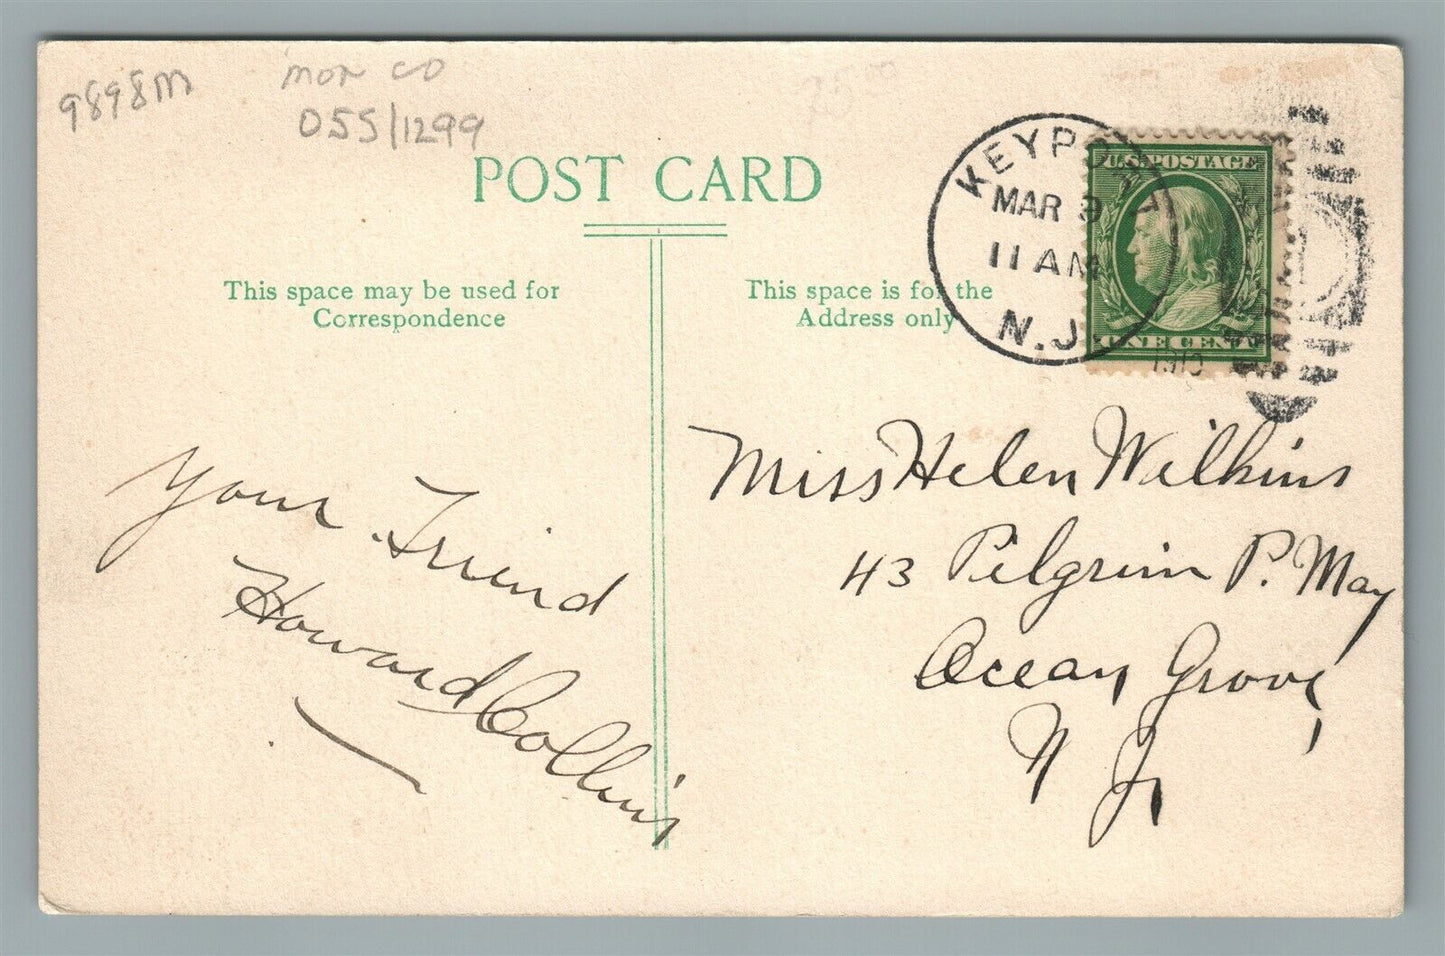 9898m
mon co
055/1299
POST CARD
This space may be used for
Correspondence
This space is for the
Address only
KEYPORT
MAR 9
11 AM
N.J.
U.S. POSTAGE
ONE CENT
Your Friend
Howard Collins
Miss Helen Wilkins
43 Pilgrim P. Way
Ocean Grove,
N J,